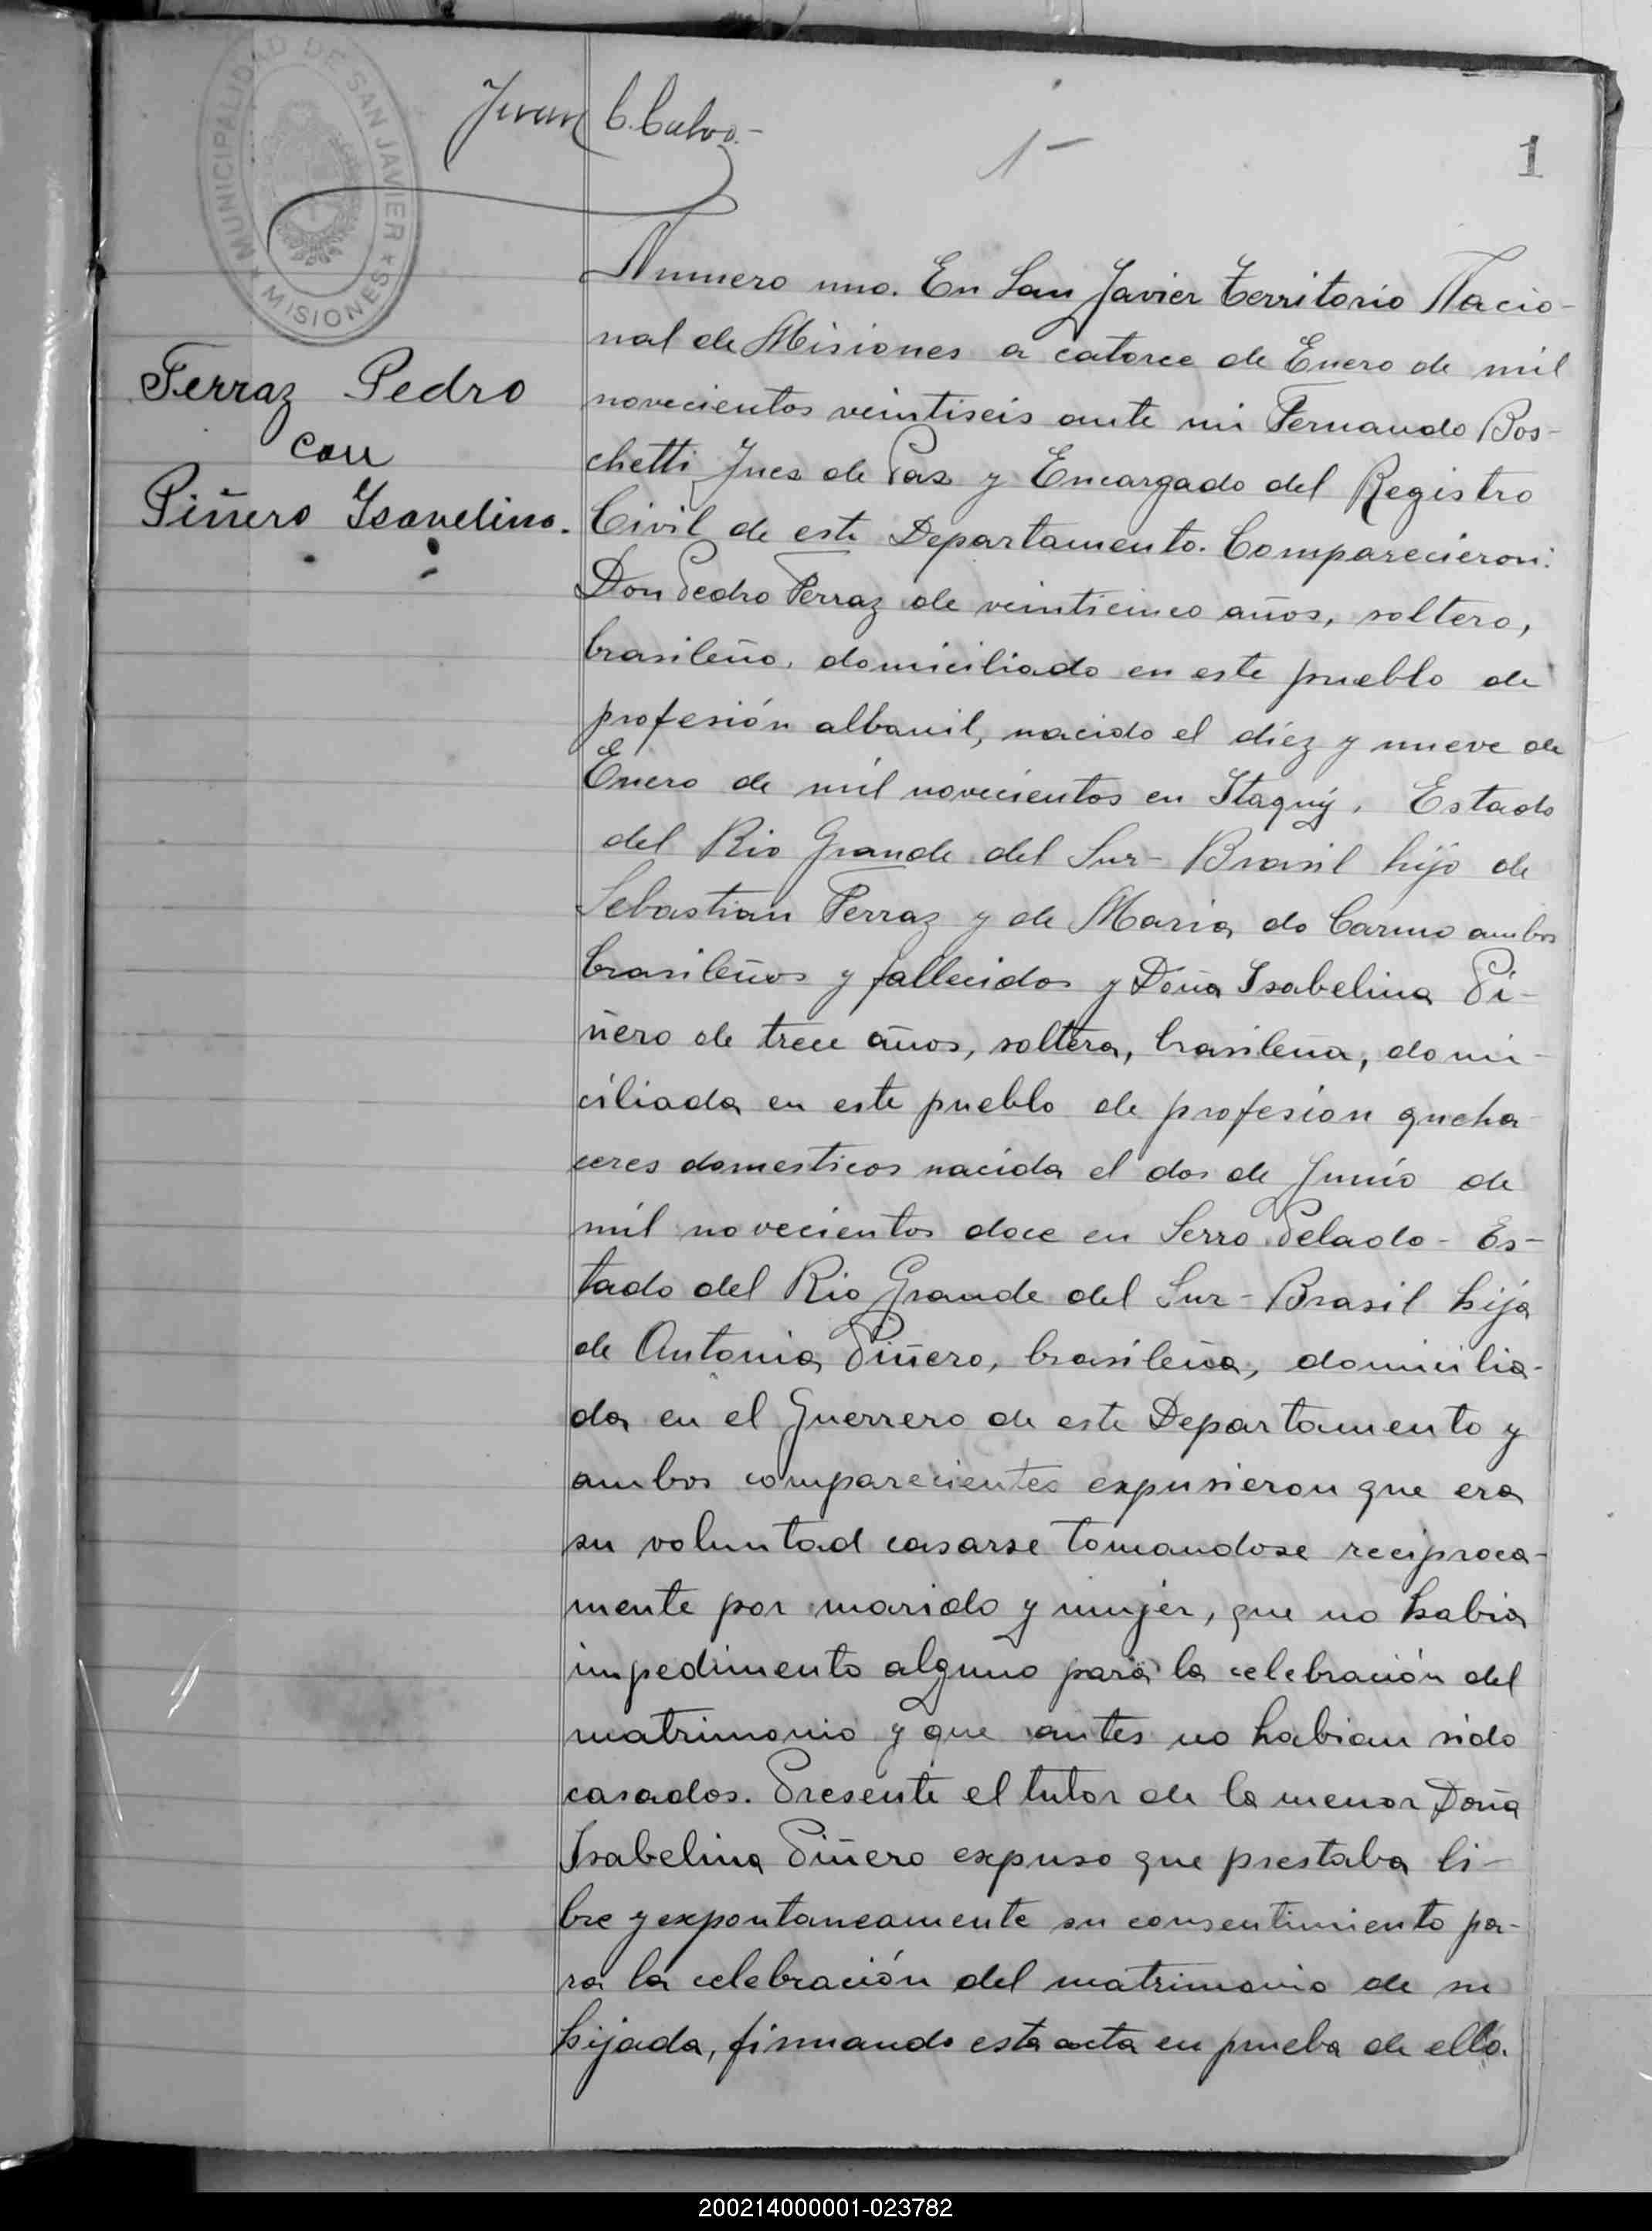 MUNICIPALIDAD DE SAN JAVIER
MISIONES
Juan C. Calvo.-
1-
1
Ferraz Pedro
con
Piñero Isavelina.
Numero uno. En San Javier Territorio Nacio-
nal de Misiones a catorce de Enero de mil
novecientos veintiseis ante mi Fernando Bos-
chetti Juez de Paz y Encargado del Registro
Civil de este Departamento. Comparecieron:
Don Pedro Ferraz de veinticinco años, soltero,
brasileño, domiciliado en este pueblo de
profesión albanil, nacido el diéz y nueve de
Enero de mil novecientos en Itaquy, Estado
del Rio Grande del Sur - Brasil hijo de
Sebastian Ferraz y de Maria do Carmo ambos
brasileños y fallecidos y Doña Isabelina Pi-
ñero de trece años, soltera, brasileña, domi-
ciliada en este pueblo de profesion queha
ceres domesticos nacida el dos de Junio de
mil novecientos doce en Serro Pelado - Es-
tado del Rio Grande del Sur - Brasil hija
de Antonia Piñero, brasileña, domicilia-
da en el Guerrero de este Departamento y
ambos comparecientes expusieron que era
su voluntad casarse tomandose reciproca-
mente por marido y mujer, que no habia
impedimento alguno para la celebración del
matrimonio y que antes no habian sido
casados. Presente el tutor de la menor Doña
Isabelina Piñero expuso que prestaba li-
bre y expontaneamente su consentimiento pa-
ra la celebración del matrimonio de su
hijada, firmando esta acta en prueba de ello.
200214000001-023782